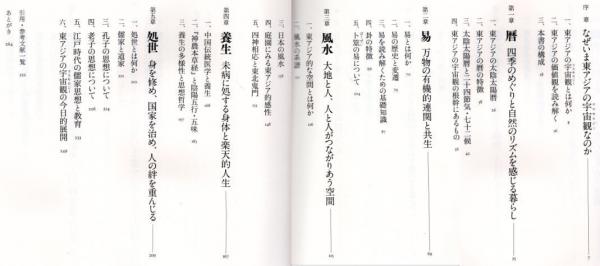 序章　なぜいま東アジアの宇宙観なのか 7
一、東アジアの宇宙観とは何か
二、東アジアの価値観を読み解く
三、本書の構成
第一章　暦　四季のめぐりと自然のリズムを感じる暮らし
一、東アジアの太陰太陽暦
二、東アジアの暦の特徴
三、太陰太陽暦と二十四節気・七十二候
四、東アジアの宇宙観の根幹にあるもの
第二章　易　万物の有機的連関と共生
一、易とは何か
二、易の歴史と変遷
三、易を読み解くための基礎知識
四、卦の特徴
五、筮竹の易について
第三章　風水　大地と人、人と人がつながりあう空間
一、東アジア的な空間とは何か
二、風水の系譜
三、日本の風水
四、庭園にみる東アジア的感性
五、四神相応と東北鬼門
第四章　養生　未病に処する身体と楽天的人生
一、中国伝統医学と養生
二、『神農本草経』と陰陽五行・五味
三、養生の多様性と思想哲学
第五章　処世　身を修め、国家を治め、人の絆を重んじる
一、処世とは何か
二、儒家と道家
三、孔子の思想について
四、老子の思想について
五、江戸時代の儒家思想と教育
六、東アジアの宇宙観の今日的展開
引用・参考文献一覧
あとがき